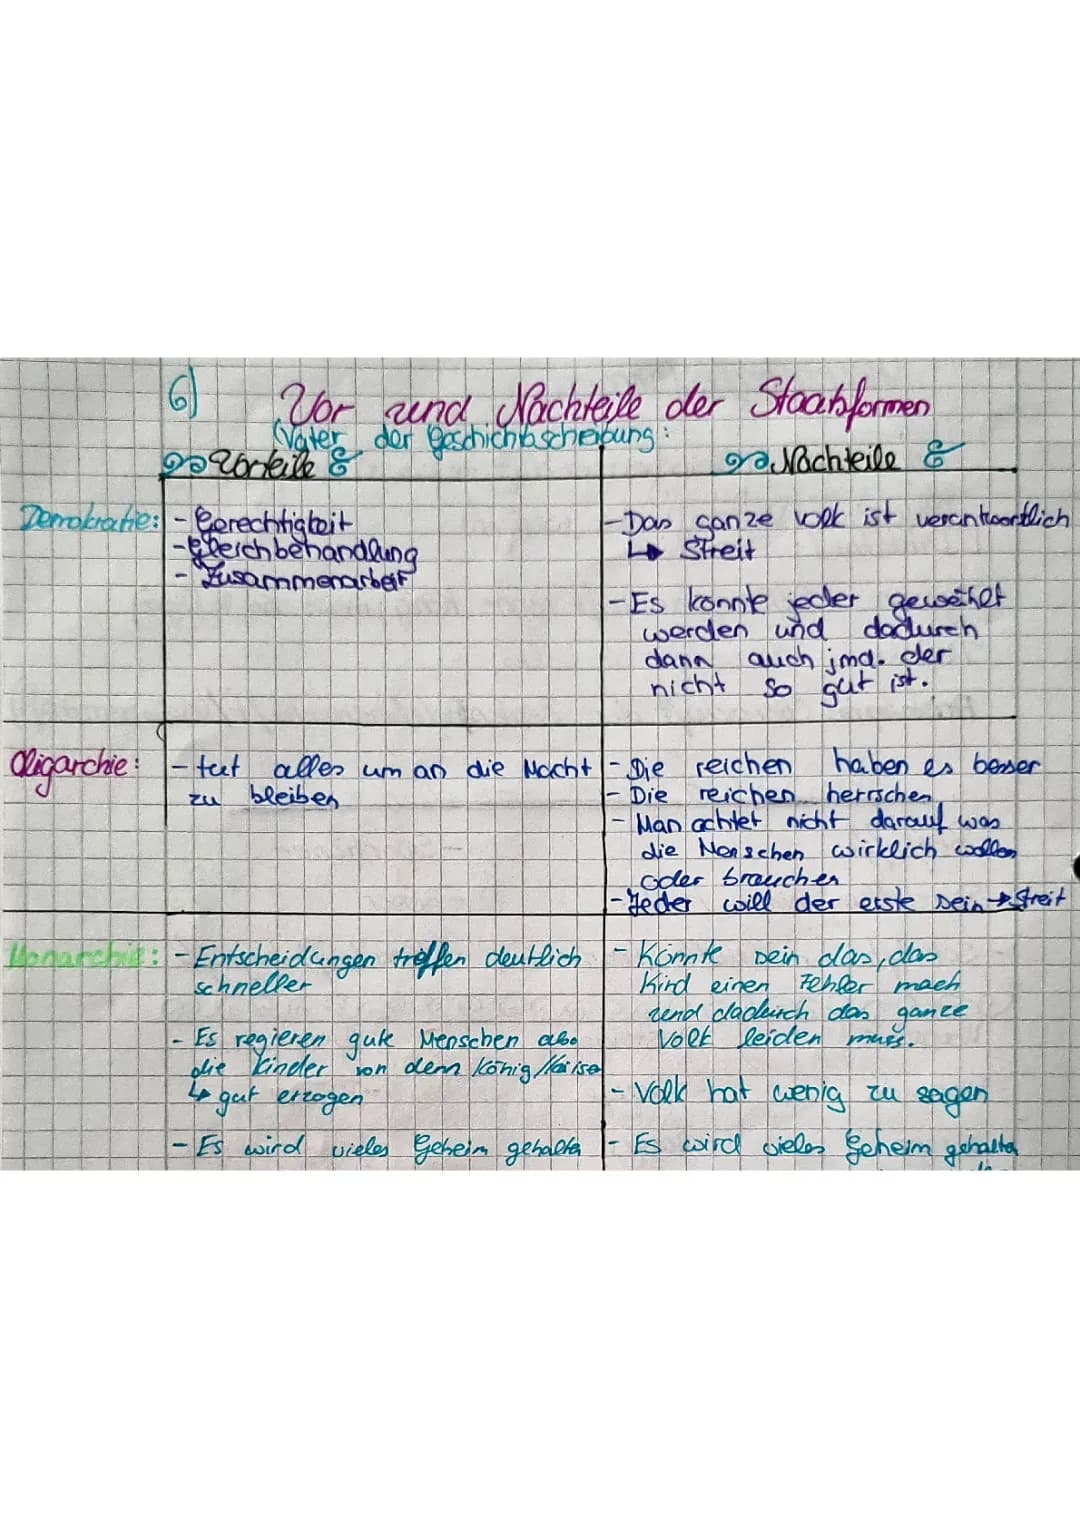 6)
Vor und Nachteile der Staatsformen
(Vater der Geschichtsscheibung:
Vorteile
Nachteile
Demokratie:
- Gerechtigkeit
- gleichbehandlung
- Zusammenarbeit
- Das ganze volk ist verantwortlich
↳ Streit
- Es könnte jeder gewählt
werden und dadurch
dann auch jmd. der
nicht so gut ist.
Oligarchie:
- tut alles um an die Macht
zu bleiben
- Die reichen haben es besser
- Die reichen herrschen
- Man achtet nicht darauf was
die Menschen wirklich wollen
oder brauchen
- Jeder will der erste sein → Streit
Monarchie:
- Entscheidungen treffen deutlich
schneller
- Es regieren gute Menschen also
die Kinder von dem König/Kaiser
↳ gut erzogen
- Es wird vieles Geheim gehalten
- Könnte sein das, das
Kind einen Fehler mach
und dadurch das ganze
Volk leiden muss.
- Volk hat wenig zu sagen
- Es wird vieles Geheim gehalten